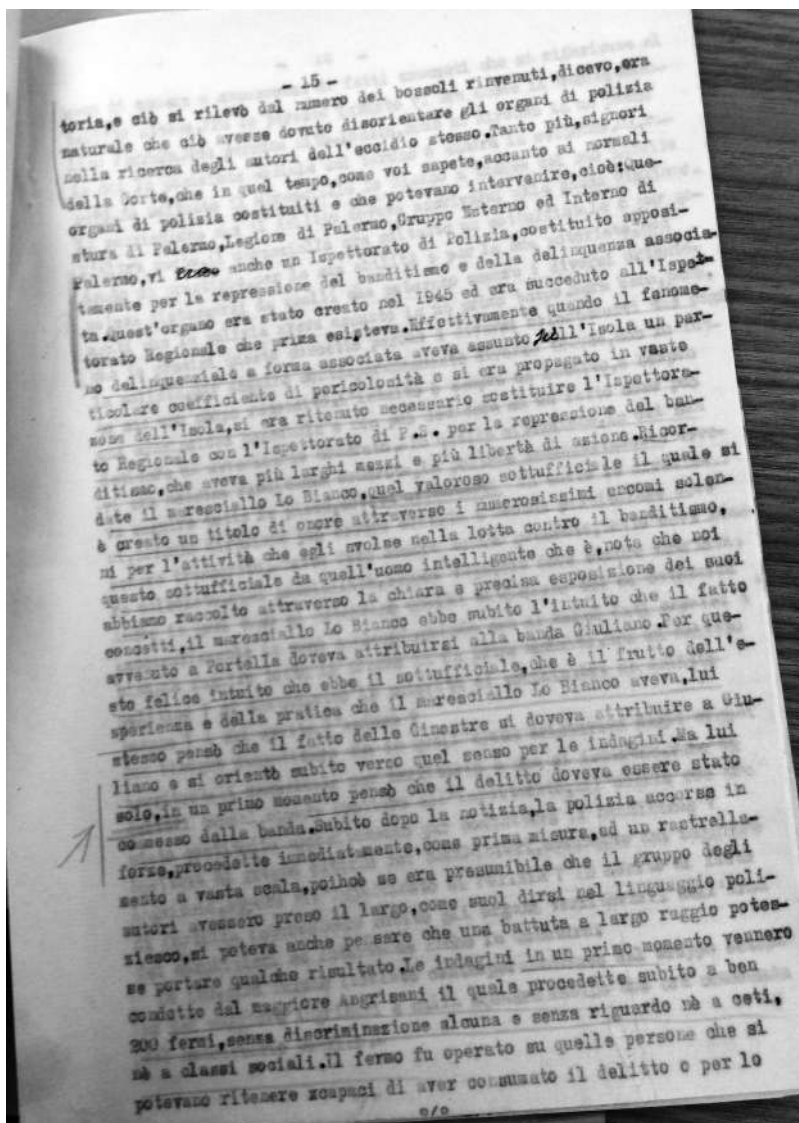 - 15 -
toria,e ciò si rilevò dal numero dei bossoli rinvenuti,dicevo,era
naturale che ciò avesse dovuto disorientare gli organi di polizia
nella ricerca degli autori dell'eccidio stesso.Tanto più,signori
della Corte,che in quel tempo,come voi sapete,accanto ai normali
organi di polizia costituiti e che potevano intervenire,cioè:Que-
stura di Palermo,Legione di Palermo,Gruppo Esterno ed Interno di
Palermo,vi anche un Ispettorato di Polizia,costituito apposi-
tamente per la repressione del banditismo e della delinquenza associa-
ta.Quest'organo era stato creato nel 1945 ed era succeduto all'Ispet-
torato Regionale che prima esisteva.Effettivamente quando il fenome-
no delinquenziale a forma associata aveva assunto nell'Isola un par-
ticolare coefficiente di pericolosità e si era propagato in vaste
zone dell'Isola,si era ritenuto necessario sostituire l'Ispettora-
to Regionale con l'Ispettorato di P.S. per la repressione del ban-
ditismo,che aveva più larghi mezzi e più libertà di azione.Ricor-
date il maresciallo Lo Bianco,quel valoroso sottufficiale il quale si
è creato un titolo di onore attraverso i numerosissimi encomi solen-
ni per l'attività che egli svolse nella lotta contro il banditismo,
questo sottufficiale da quell'uomo intelligente che è,nota che noi
abbiamo raccolto attraverso la chiara e precisa esposizione dei suoi
concetti,il maresciallo Lo Bianco ebbe subito l'intuito che il fatto
avvenuto a Portella doveva attribuirsi alla banda Giuliano.Per que-
sto felice intuito che ebbe il sottufficiale,che è il frutto dell'e-
sperienza e della pratica che il maresciallo Lo Bianco aveva,lui
stesso pensò che il fatto delle Ginestre si doveva attribuire a Giu-
liano e si orientò subito verso quel senso per le indagini.Ma lui
solo,in un primo momento pensò che il delitto doveva essere stato
commesso dalla banda.Subito dopo la notizia,la polizia accorse in
forze,procedette immediatamente,come prima misura,ad un rastrella-
mento a vasta scala,poihcè se era presumibile che il gruppo degli
autori avessero preso il largo,come suol dirsi nel linguaggio poli-
ziesco,si poteva anche pensare che una battuta a largo raggio potes-
se portare qualche risultato.Le indagini in un primo momento vennero
condotte dal maggiore Angrisani il quale procedette subito a ben
200 fermi,senza discriminazione alcuna e senza riguardo nè a ceti,
nè a classi sociali.Il fermo fu operato su quelle persone che si
potevano ritenere xcapaci di aver consumato il delitto o per lo